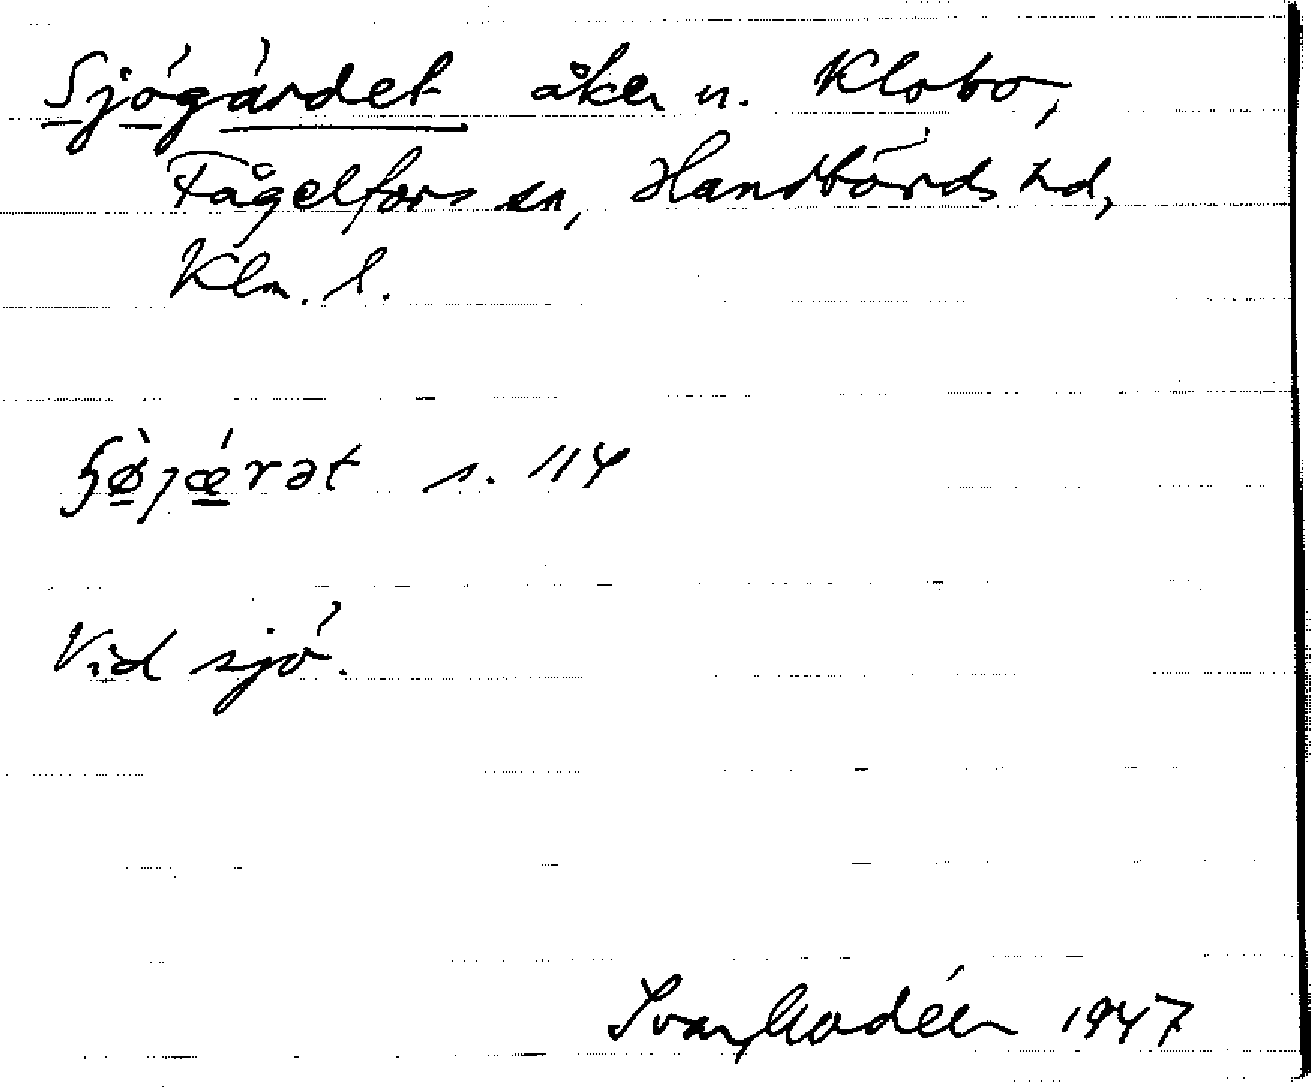 Sjögärdet åker u. Klobo,
Fågelfors sn, Handbörds hd,
Klm. l.
ɧø̀jǽrət s. 114
Vid sjö.
Modéer 1947